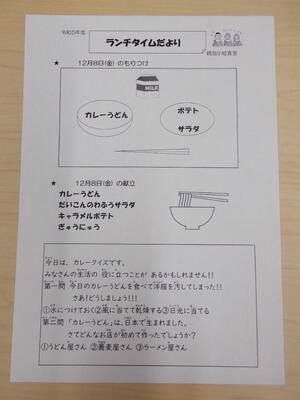 令和5年度
ランチタイムだより
給食室
★ 12月8日(金) のもりつけ
MILK
カレーうどん
ポテト
サラダ
★ 12月8日(金) の献立
カレーうどん
だいこんのわふうサラダ
キャラメルポテト
ぎゅうにゅう
今日は、カレークイズです。
みなさんの生活の 役に立つことが あるかもしれません!!
第一問 今日のカレーうどんを食べて洋服を汚してしまった!!
さあ!どうしましょう!!!
①水につけておく②風に当てて乾燥する③日光に当てる
第二問 「カレーうどん」は、日本で生まれました。
さてどんなお店が初めて作ったでしょうか?
①うどん屋さん ②蕎麦屋さん ③ラーメン屋さん